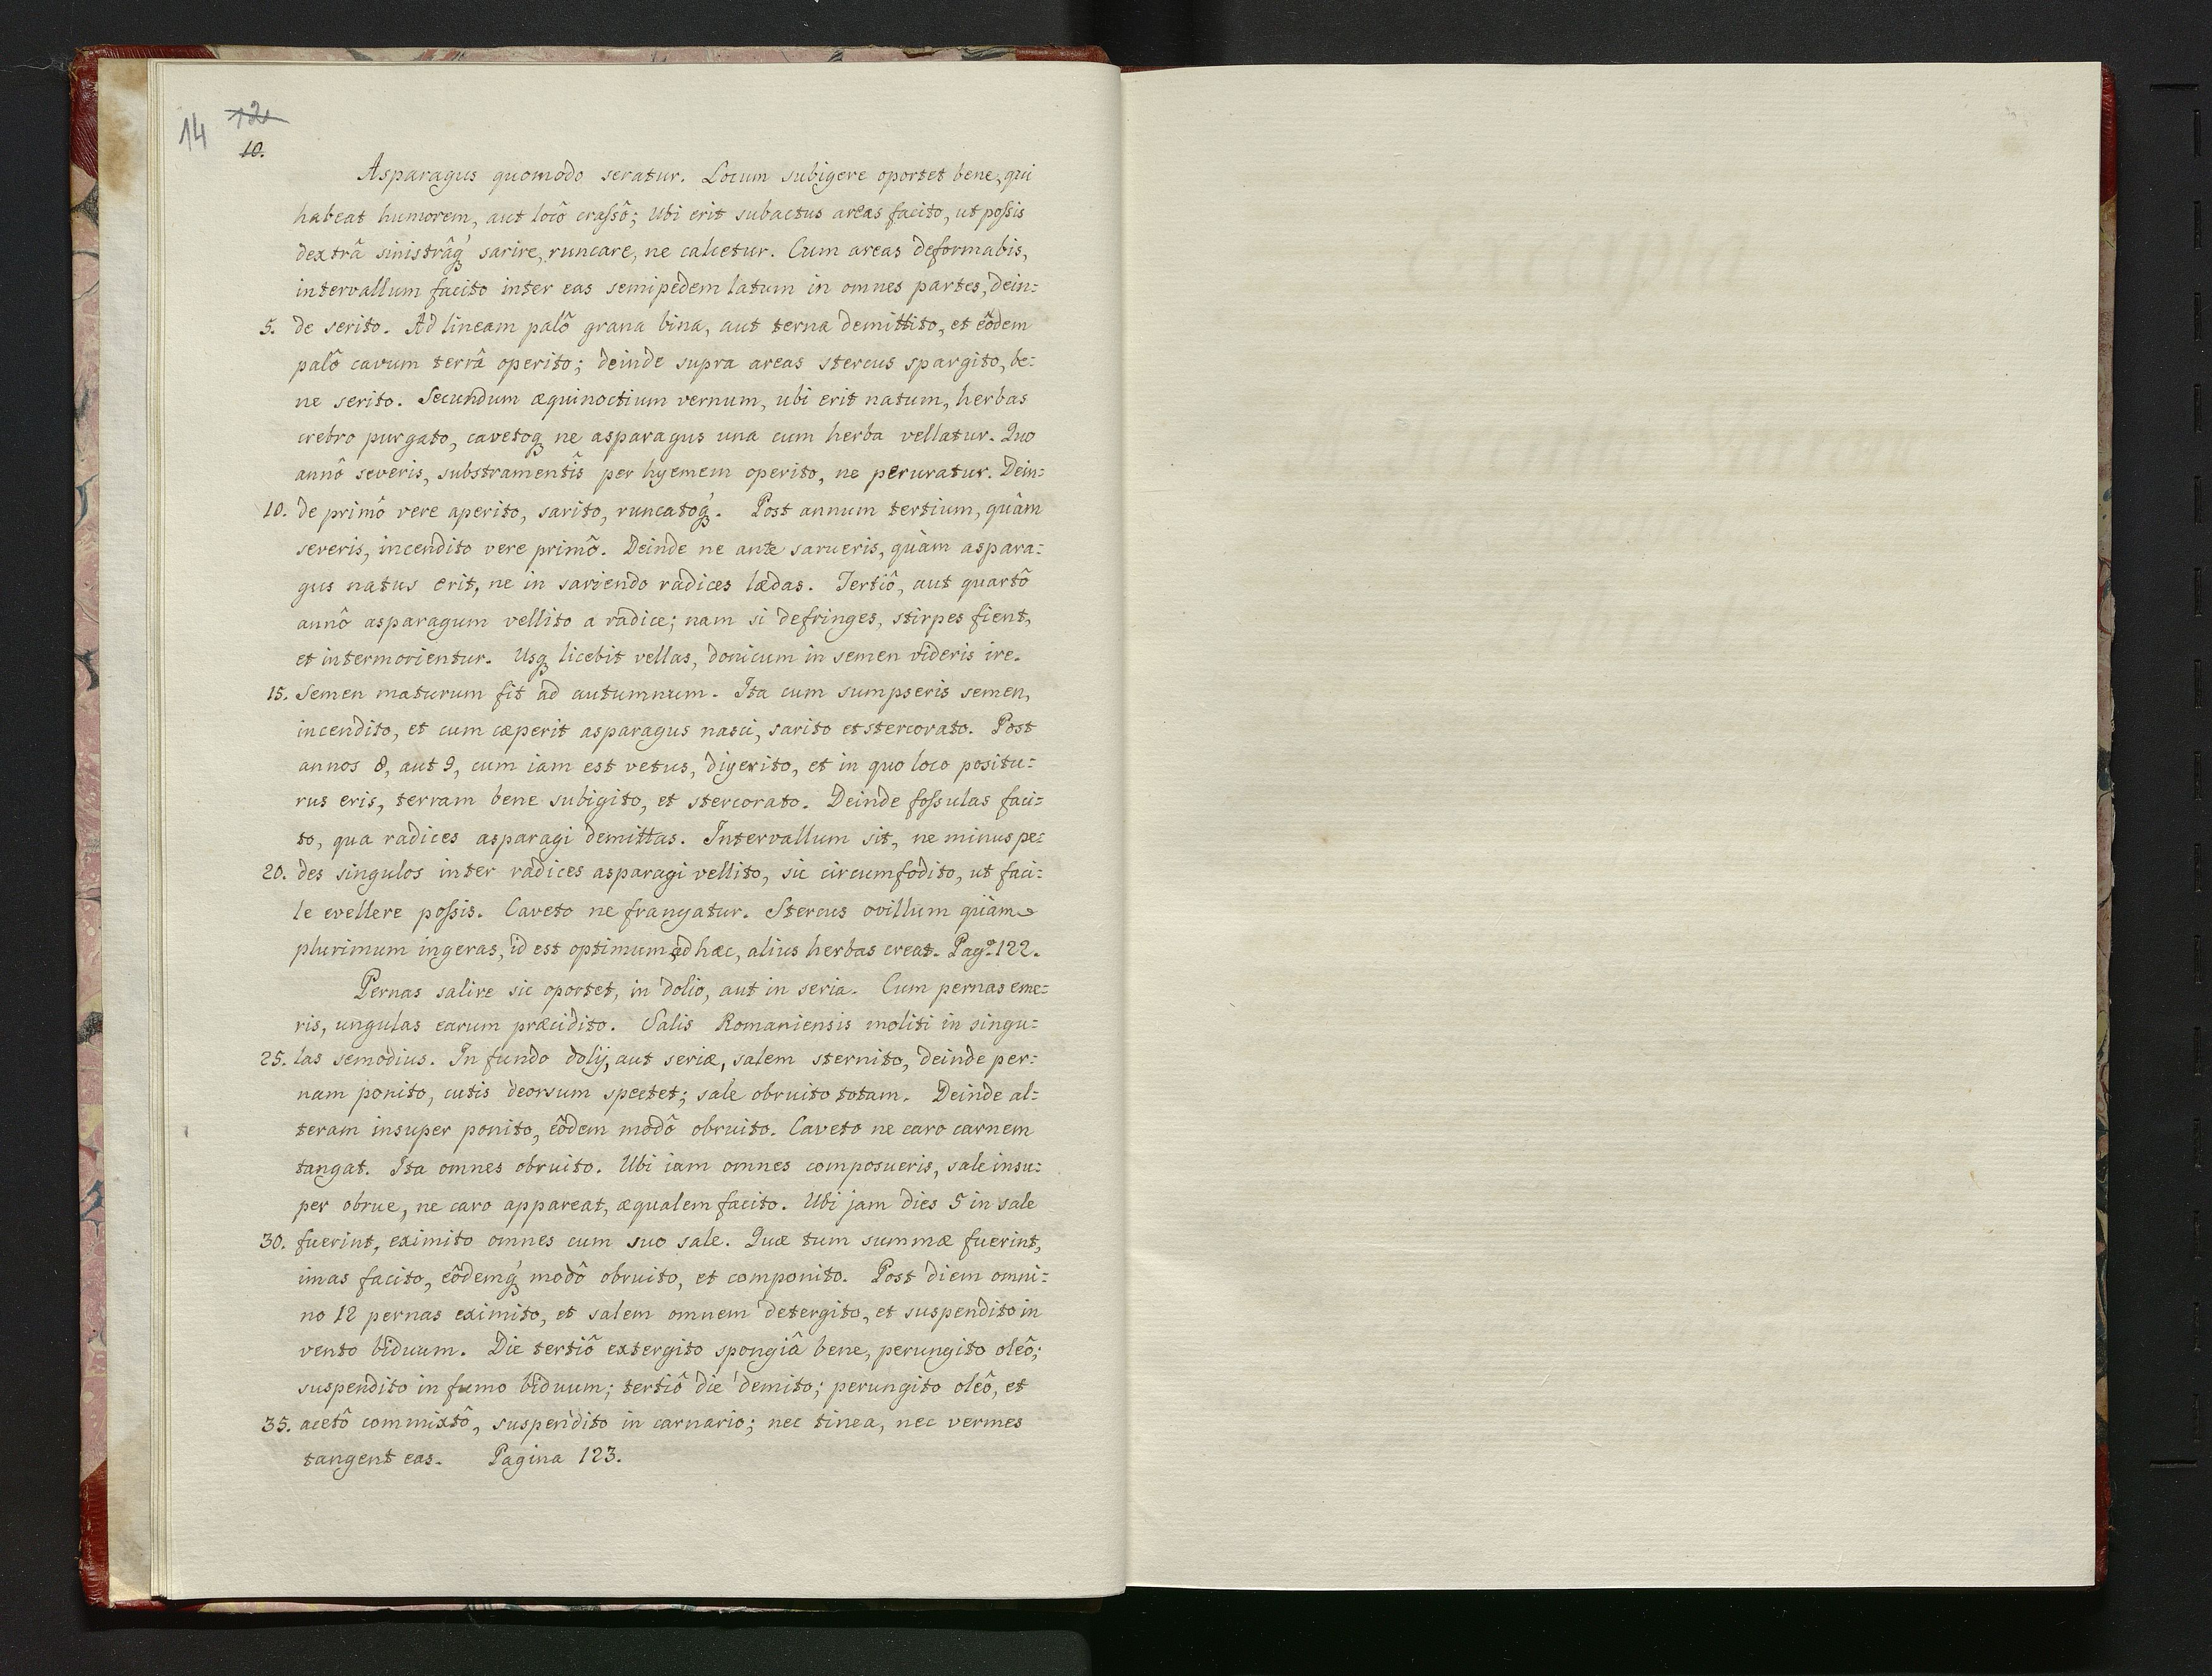 14 12
10.
Asparagus quomodo seratur. Locum subigere oportet bene, qui
habeat humorem, aut locô crassô; Ubi erit subactus areas facito, ut possis
dextrâ sinistrâq́ sarire, runcare, ne calcetur. Cum areas deformabis,
intervallum facito inter eas semipedem latum in omnes partes, dein:
5. de serito. Ad lineam palô grana bina, aut terna demittito, et eôdem
palô cavum terrâ operito; deinde supra areas stercus spargito, be:
ne serito. Secundum æquinoctium vernum, ubi erit natum, herbas
crebro purgato, cavetoq ne asparagus una cum herba vellatur. Quo
annô severis, substramentîs per hyemem operito, ne peruratur. Dein:
10. de primô vere aperito, sarito, runcatoq́. Post annum tertium, quàm
severis, incendito vere primô. Deinde ne ante sarueris, quàm aspara:
gus natus erit, ne in sariendo radices lædas. Tertiô, aut quartô
annô asparagum vellito a radice; nam si defringes, stirpes fient,
et intermorientur. Usq licebit vellas, donicum in semen videris ire.
15. Semen maturum fit ad autumnum. Ita cum sumpseris semen,
incendito, et cum cæperit asparagus nasci, sarito et stercorato. Post
annos 8, aut 9, cum iam est vetus, digerito, et in quo loco positu:
rus eris, terram bene subigito, et stercorato. Deinde fossulas faci:
to, qua radices asparagi demittas. Intervallum sit, ne minus pe:
20. des singulos inter radices asparagi vellito, sic circumfodito, ut faci:
le evellere possis. Caveto ne frangatur. Stercus ovillum quàm
plurimum ingeras, id est optimum ad hæc, alius herbas creat. Pag.ª 122.
Pernas salire sic oportet, in dolio, aut in seria. Cum pernas eme:
ris, ungulas earum præcidito. Salis Romaniensis moliti in singu:
25. las semodius. In fundo dolij, aut seriæ, salem sternito, deinde per:
nam ponito, cutis deorsum spectet; sale obruito totam. Deinde al:
teram insuper ponito, eôdem modô obruito. Caveto ne caro carnem
tangat. Ita omnes obruito. Ubi iam omnes composueris, sale insu:
per obrue, ne caro appareat, æqualem facito. Ubi jam dies 5 in sale
30. fuerint, eximito omnes cum suo sale. Quæ tum summæ fuerint,
imas facito, eôdemq́ modô obruito, et componito. Post diem omni:
no 12 pernas eximito, et salem omnem detergito, et suspendito in
vento biduum. Die tertiô extergito spongiâ bene, perungito oleô;
suspendito in fumo biduum; tertiô die demito; perungito oleô, et
35. acetô commixtô, suspendito in carnario; nec tinea, nec vermes
tangent eas. Pagina 123.